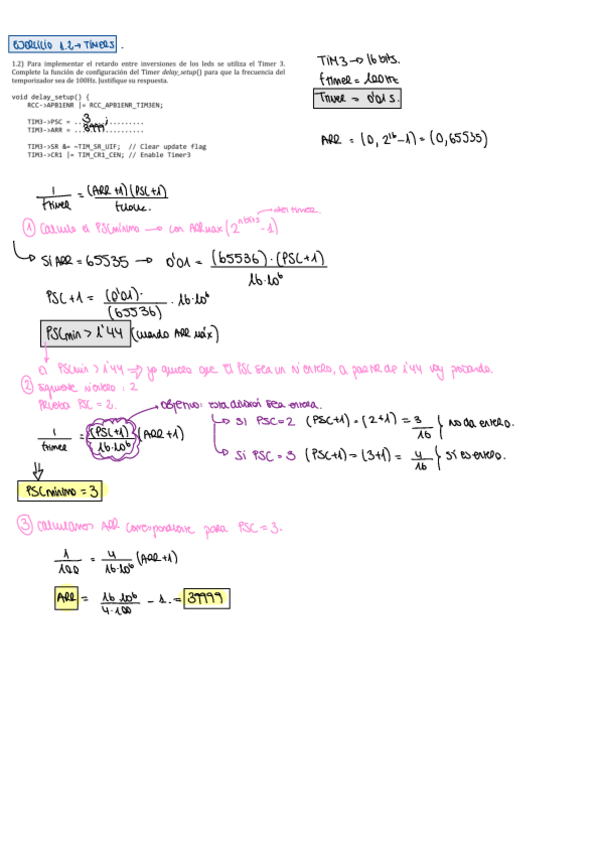 EJERCICIO 1.2 → TIMERS.
1.2) Para implementar el retardo entre inversiones de los leds se utiliza el Timer 3.
Complete la función de configuración del Timer delay_setup() para que la frecuencia del
temporizador sea de 100Hz. Justifique su respuesta.
void delay_setup() {
RCC->APB1ENR |= RCC_APB1ENR_TIM3EN;
TIM3->PSC = ..3..;.........
TIM3->ARR = ..3999..............
TIM3->SR &= ~TIM_SR_UIF; // Clear update flag
TIM3->CR1 |= TIM_CR1_CEN; // Enable Timer3
TIM3 → 16 bits.
ftimer = 100Hz
Timer = 0'01 s.
ARR = (0, 2^16-1) = (0, 65535)
1/ftimer = (ARR+1)(PSC+1)/fclock.
① Calculo el PSC mínimo → con ARR max (2^nbits -1)
del timer.
Si ARR = 65535 → 0'01 = (65536)·(PSC+1)/16·10^6
PSC+1 = (0'01)·/(65536) · 16·10^6
PSCmin > 1'44 (cuando ARR máx)
el PSCmin > 1'44 ⇒ yo quiero que el PSC sea un nº entero, a partir de 1'44 voy probando.
② Siguiente nº entero: 2
Prueba PSC = 2.
Objetivo: esta división sea entera.
1/ftimer = (PSC+1)/16·10^6 (ARR+1)
Si PSC=2 (PSC+1) = (2+1) = 3/16 } no da entero.
Si PSC = 3 (PSC+1) = (3+1) = 4/16 } Sí es entero.
PSC mínimo = 3
③ Calculamos ARR correspondiente para PSC = 3.
1/100 = 4/16·10^6 (ARR+1)
ARR = 16·10^6/4·100 - 1. = 39999